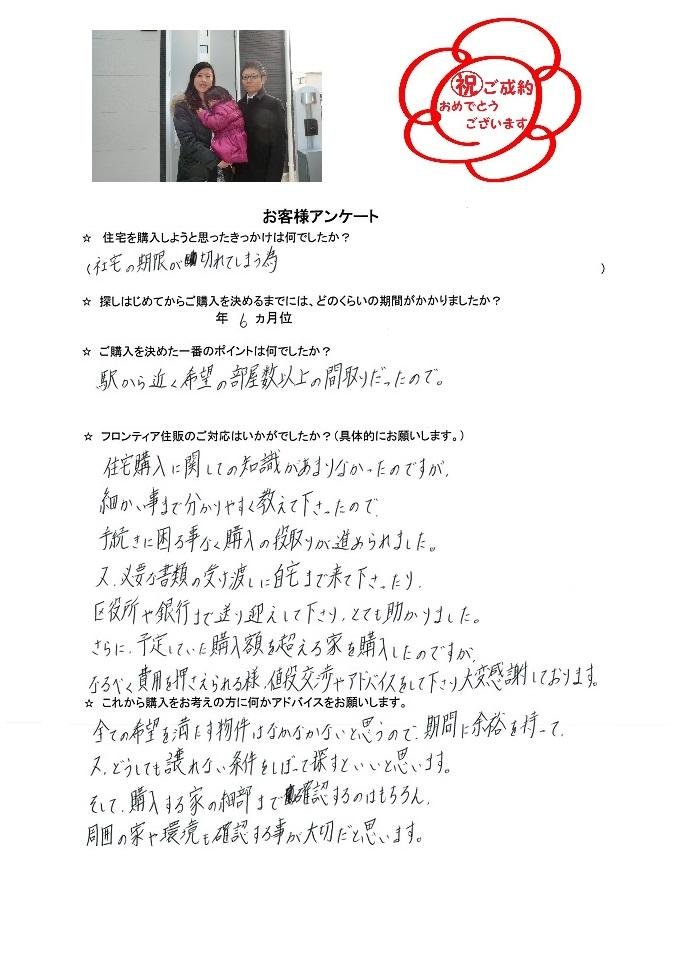 ㊗ご成約
おめでとう
ございます
お客様アンケート
☆ 住宅を購入しようと思ったきっかけは何でしたか？
（社宅の期限が切れてしまう為）
☆ 探しはじめてからご購入を決めるまでには、どのくらいの期間がかかりましたか？
年 6 ヵ月位
☆ ご購入を決めた一番のポイントは何でしたか？
駅から近く希望の部屋数以上の間取りだったので。
☆ フロンティア住販のご対応はいかがでしたか？（具体的にお願いします。）
住宅購入に関しての知識があまりなかったのですが、
細かい事まで分かりやすく教えて下さったので、
手続きに困る事なく購入の段取りが進められました。
又、必要な書類の受け渡しに自宅まで来て下さったり、
区役所や銀行まで送り迎えして下さり、とても助かりました。
さらに、予定していた購入額を超える家を購入したのですが、
なるべく費用を押さえられる様、値段交渉やアドバイスをして下さり大変感謝しております。
☆ これから購入をお考えの方に何かアドバイスをお願いします。
全ての希望を満たす物件はなかなかないと思うので、期間に余裕を持って、
又、どうしても譲れない条件をしぼって探すといいと思います。
そして、購入する家の細部まで確認するのはもちろん、
周囲の家や環境も確認する事が大切だと思います。